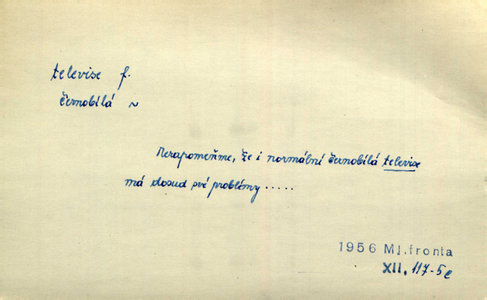 televise f.
černobílá ~
Nezapomeňme, že i normální černobílá televise
má dosud své problémy .....
1956 Ml.fronta
XII, 117-5e